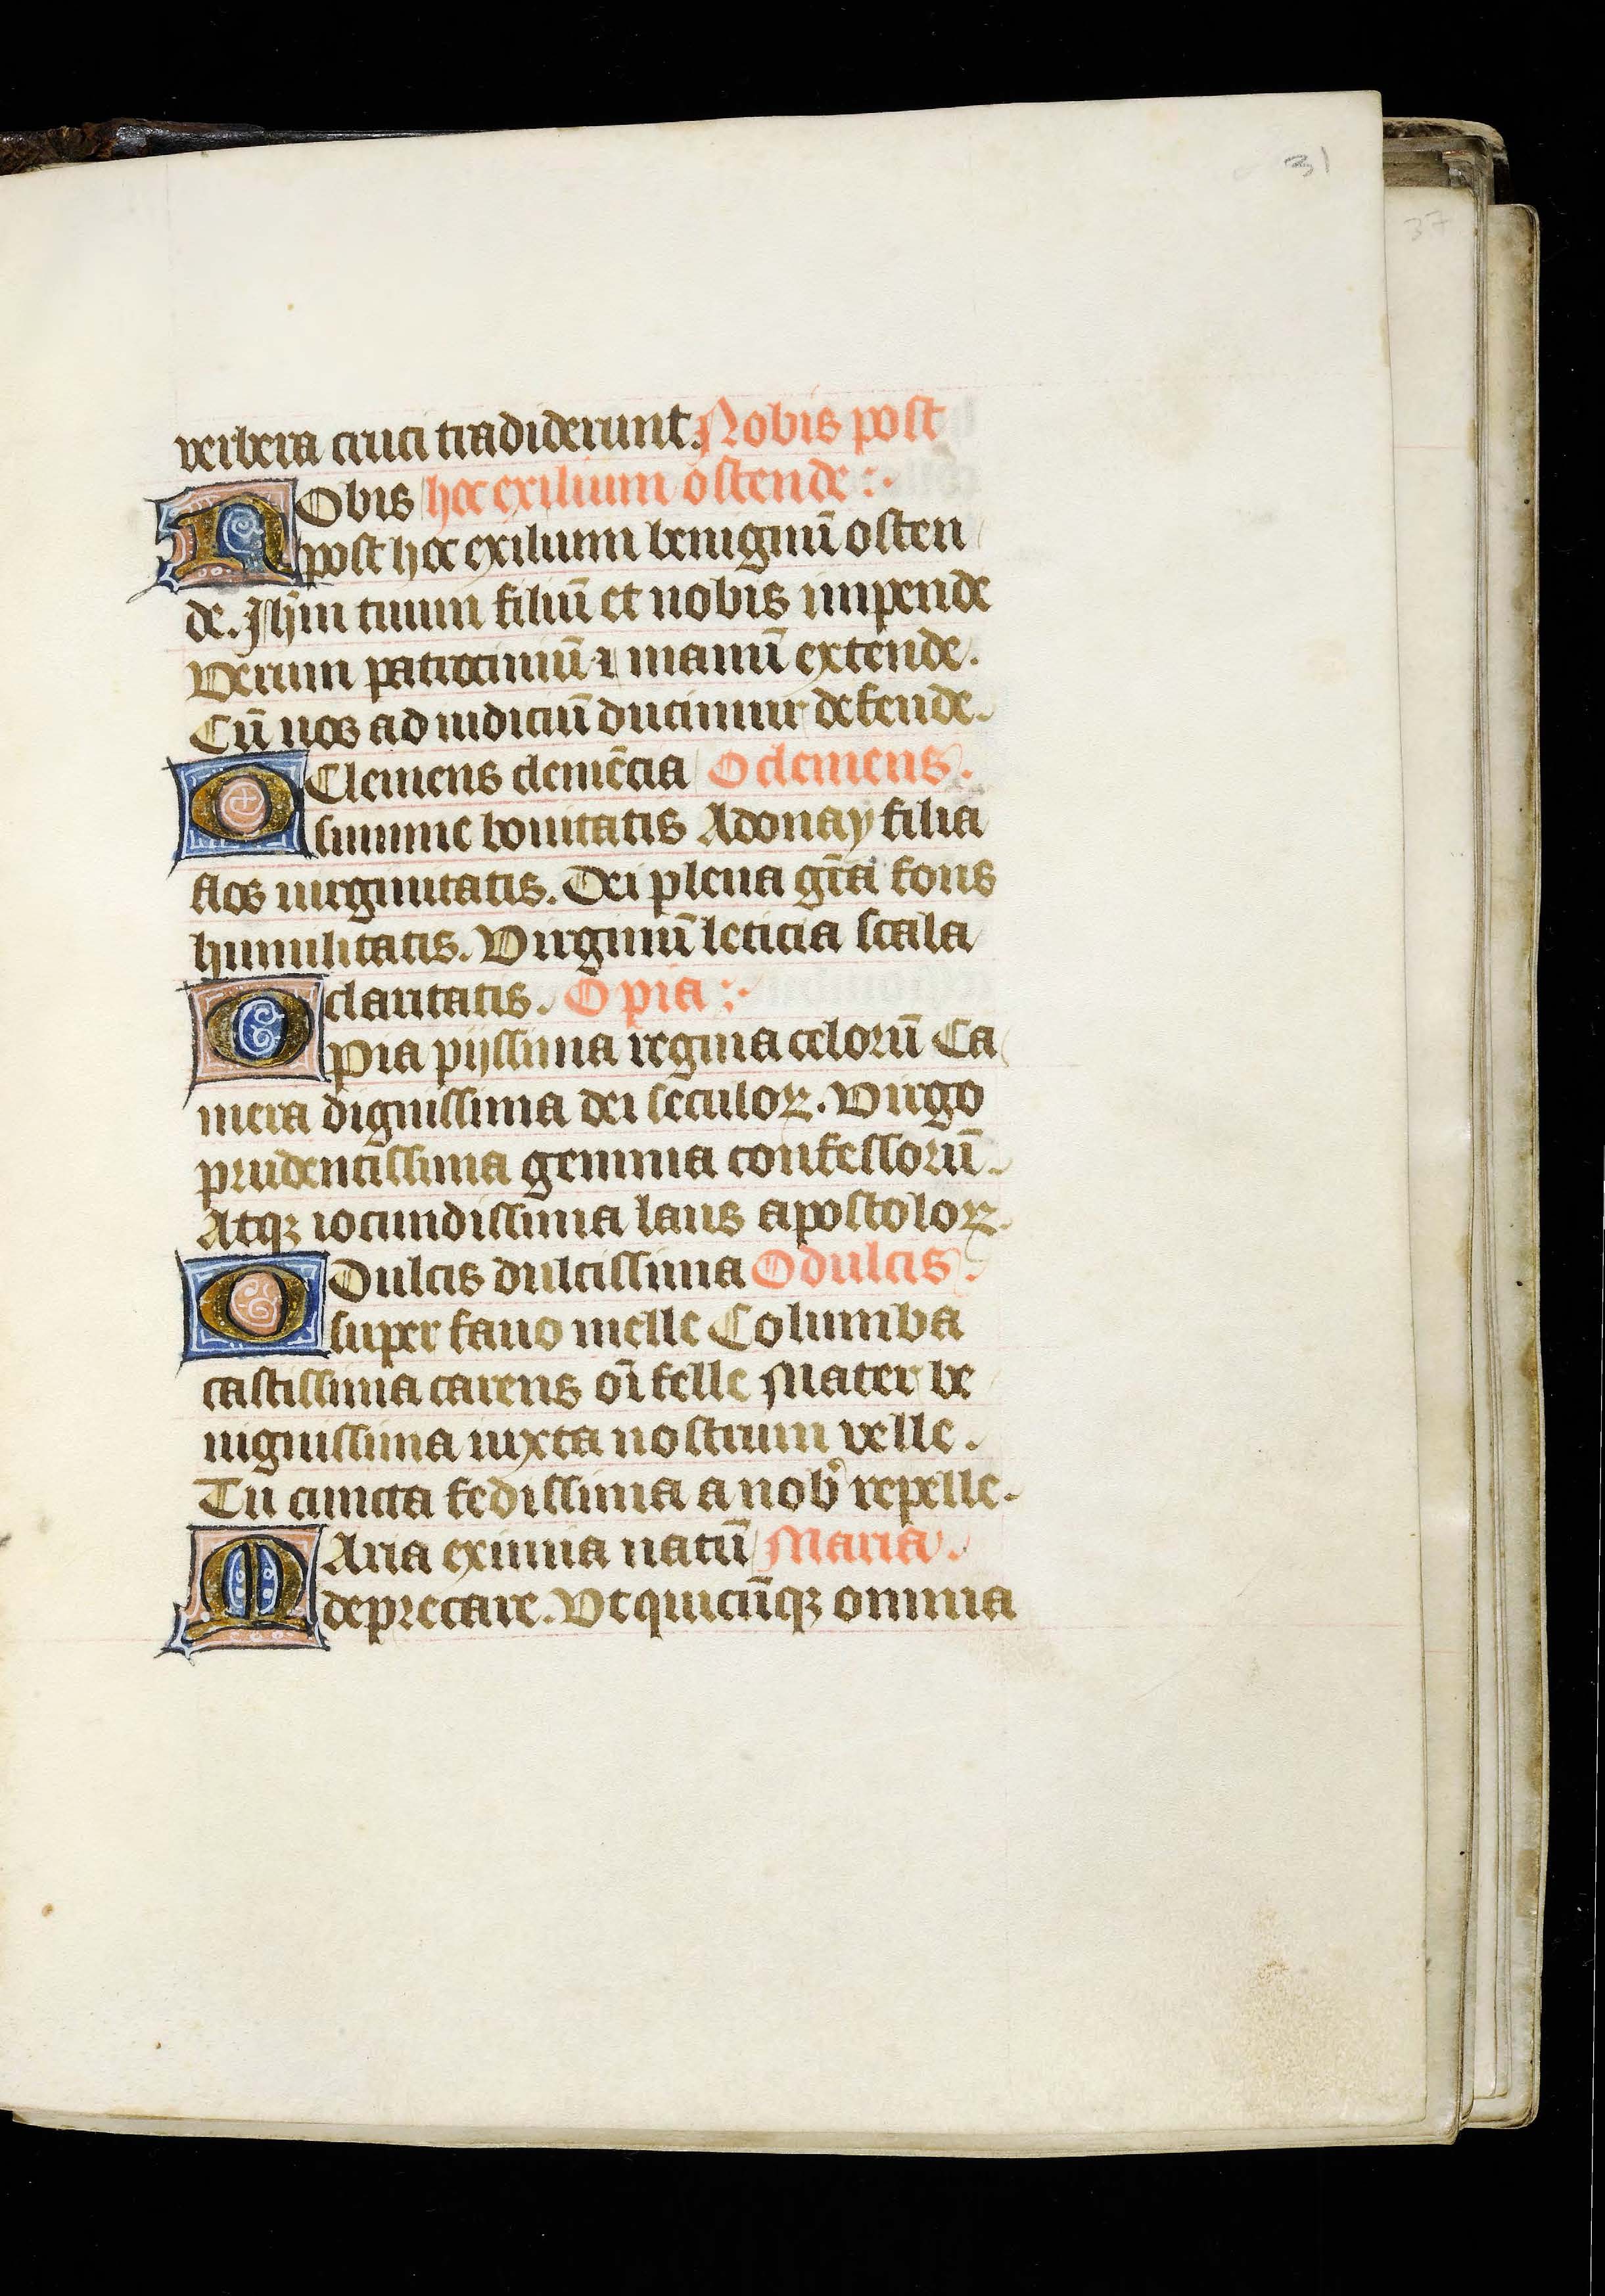 31
37
verbera cruci tradiderunt. Nobis post
NObis hoc exilium ostende :·
post hoc exilium benignū osten
de. Jhm̄ tuum filiū et nobis impende
Verum patrociniū ⁊ manū extende.
Cū nos ad iudiciū ducimur defende.
O Clemens clemēcia O clemens.
summe bonitatis Adonay filia
flos uirginitatis. Dei plena gr̄a fons
humilitatis. Virginū leticia scala
claritatis. O pia :·
O Pia pijssima regina celorū Ca
mera dignissima dei seculoꝝ. Virgo
prudentissima gemma confessorū.
Atqꝫ iocundissima laus apostoloꝝ.
O Dulcis dulcissima O dulcis.
super fauo melle Columba
castissima carens oī felle Mater be
nignissima iuxta nostrum velle.
Tu cuncta fedissima a nobꝰ repelle.
MAria eximia natū Maria.
deprecare. Vt quicūqꝫ omnia